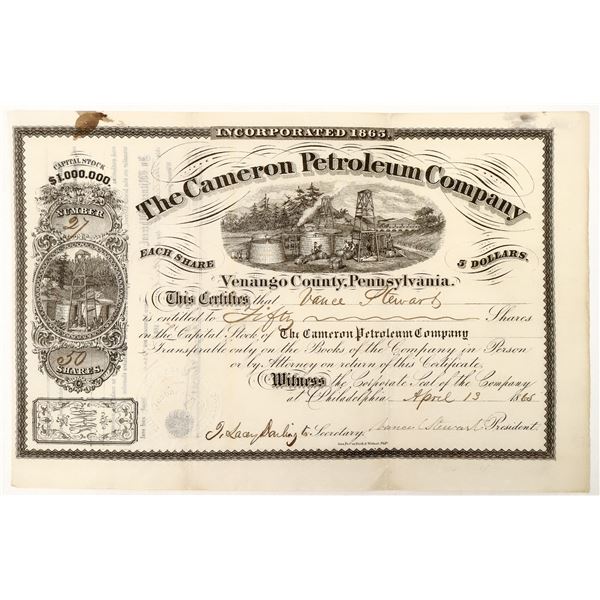 INCORPORATED 1865.
CAPITAL STOCK
$1,000.000.
The Cameron Petroleum Company
NUMBER
27
EACH SHARE
5 DOLLARS.
Venango County, Pennsylvania.
This Certifies that Vance Stewart
is entitled to Fifty Shares
on the Capital Stock of The Cameron Petroleum Company
Transferable only on the Books of the Company in Person
or by Attorney on return of this Certificate.
50
SHARES.
Witness the Corporate Seal of the Company
at Philadelphia April 13 1865
J. Lacey Darlington Secretary. Vance Stewart President.